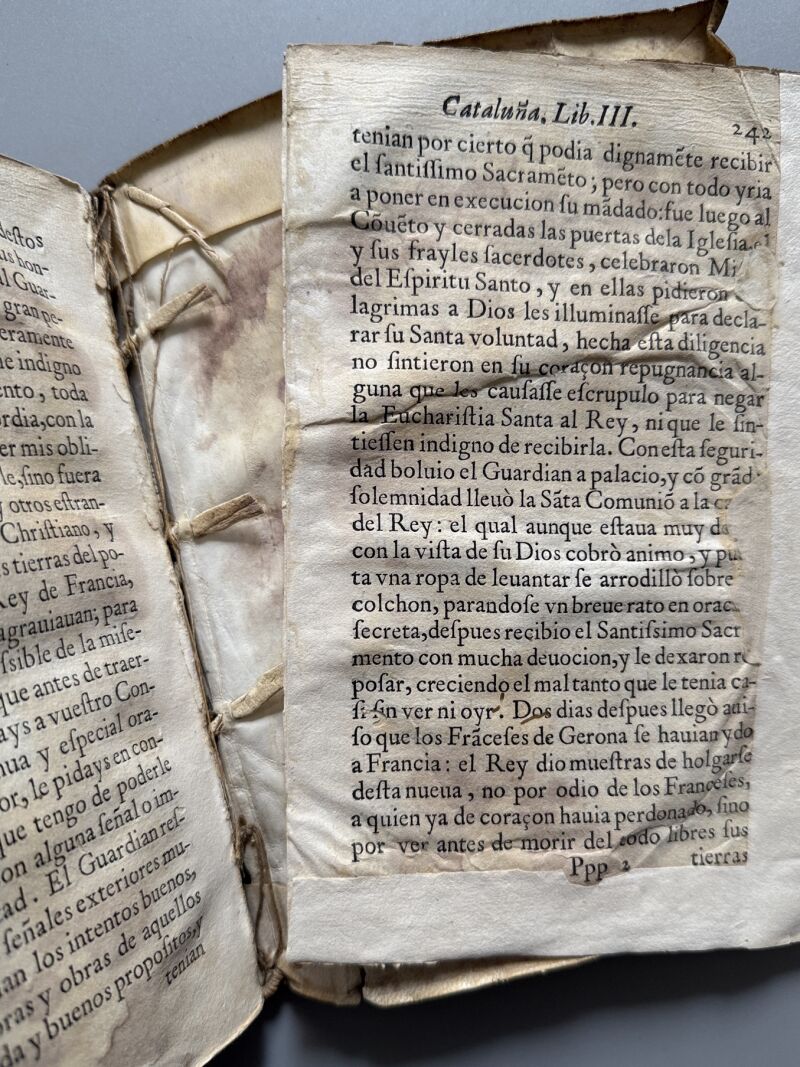 destos
us hon-
al Guar-
gran pe-
eramente
ne indigno
ento, toda
ordia, con la
er mis obli-
le, sino fuera
y otros estran-
Christiano, y
s tierras del po-
Rey de Francia,
agrauiauan; para
ssible de la mise-
que antes de traer-
ays a vuestro Con-
nua y especial ora-
or, le pidays en con-
que tengo de poderle
on alguna señal o im-
ad. El Guardian res-
señales exteriores mu-
an los intentos buenos,
ras y obras de aquellos
da y buenos propositos, y
tenian
Cataluña, Lib.III. 242
tenian por cierto q̃ podia dignamẽte recibir
el ſantiſſimo Sacramẽto; pero con todo yria
a poner en execucion ſu mãdado: fue luego al
Cõuẽto y cerradas las puertas dela Igleſia, el
y ſus frayles ſacerdotes, celebraron
del Eſpiritu Santo, y en ellas pidieron
lagrimas a Dios les illuminaſſe para decla-
rar ſu Santa voluntad, hecha eſta diligencia
no ſintieron en ſu coraçon repugnancia al-
guna que les cauſaſſe eſcrupulo para negar
la Euchariſtia Santa al Rey, ni que le ſin-
tieſſen indigno de recibirla. Con eſta ſeguri-
dad boluio el Guardian a palacio, y cõ grãd
ſolemnidad lleuò la Sãta Comuniõ a la
del Rey: el qual aunque eſtaua muy
con la viſta de ſu Dios cobrò animo, y
ta vna ropa de leuantar ſe arrodillò ſobre
colchon, parandoſe vn breue rato en orac
ſecreta, deſpues recibio el Santiſsimo Sacr
mento con mucha deuocion, y le dexaron r
poſar, creciendo el mal tanto que le tenia ca-
ſi ſin ver ni oyr. Dos dias deſpues llegò aui-
ſo que los Frãceſes de Gerona ſe hauian ydo
a Francia: el Rey dio mueſtras de holgarſe
deſta nueua, no por odio de los Franceſes,
a quien ya de coraçon hauia perdonado, ſino
por ver antes de morir del todo libres ſus
Ppp 2 tierras